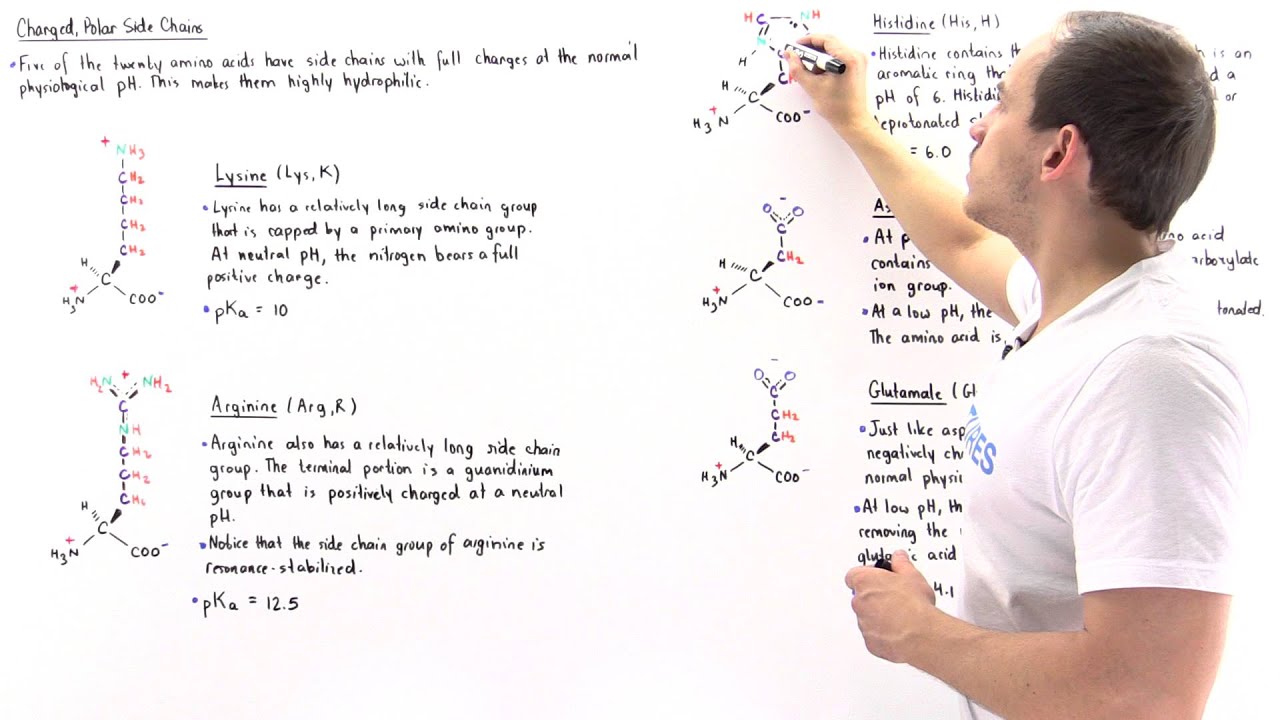 Charged, Polar Side Chains
• Five of the twenty amino acids have side chains with full charges at the normal
physiological pH. This makes them highly hydrophilic.
+
NH3
CH2
CH2
CH2
CH2
H
C
+
H3N
COO-
Lysine (Lys, K)
• Lysine has a relatively long side chain group
that is capped by a primary amino group.
At neutral pH, the nitrogen bears a full
positive charge.
• pKa = 10
+
H2N NH2
C
NH
CH2
CH2
H
C
+
H3N
COO-
Arginine (Arg, R)
• Arginine also has a relatively long side chain
group. The terminal portion is a guanidinium
group that is positively charged at a neutral
pH.
• Notice that the side chain group of arginine is
resonance-stabilized.
• pKa = 12.5
HC NH
N
H
C
H
C
+
H3N
COO-
Histidine (His, H)
• Histidine contains is an
aromatic ring a
pH of 6. or
= 6.0
-
O O
C
CH2
H
C
+
H3N
COO-
• At p amino acid
contains
ion group.
• At a low pH, the
The amino acid is
-
O O
C
CH2
CH2
H
C
+
H3N
COO-
Glutamate (
• Just like
negatively
normal
• At low pH,
removing the
acid
4.1